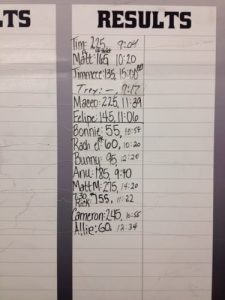 LTS
RESULTS
Tim: 225, 9:04
Matt: 165, 10:20
135, 15:00
Trey: –, 9:17
Maceo: 225, 11:39
Felipe: 145, 11:06
Bonnie: 55, 10:57
60, 10:20
Bunny: 95, 12:20
Anu: 185, 9:40
Matt M: 275, 14:20
155, 11:22
Cameron: 245, 10:55
Allie: 60, 12:34